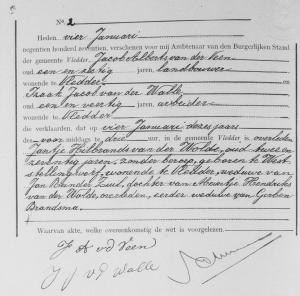 No. 2
Heden vier Januari
negentien honderd zeventien, verschenen voor mij Ambtenaar van den Burgerlijken Stand
der gemeente Vledder, Jacob Alberts van der Veen
oud een en zestig jaren, landbouwer
wonende te Vledder
en Izaak Jacob van der Walle
oud een en veertig jaren, arbeider
wonende te Vledder
die verklaarden, dat op vier Januari dezes jaars
des voormiddags te drie ure, in deze gemeente is overleden
Jantje Hilbrands van der Wolde, oud twee en
zeventig jaren, zonder beroep, geboren te West-
stellingwerf, wonende te Vledder, weduwe van
Jan Reinder Zuul, dochter van Hendriks
van der Wolde, overleden, eerder weduwe van Gerben
Brandsma.
Waarvan akte, welke overeenkomstig de wet is voorgelezen.
J A vd Veen
I J v d Walle